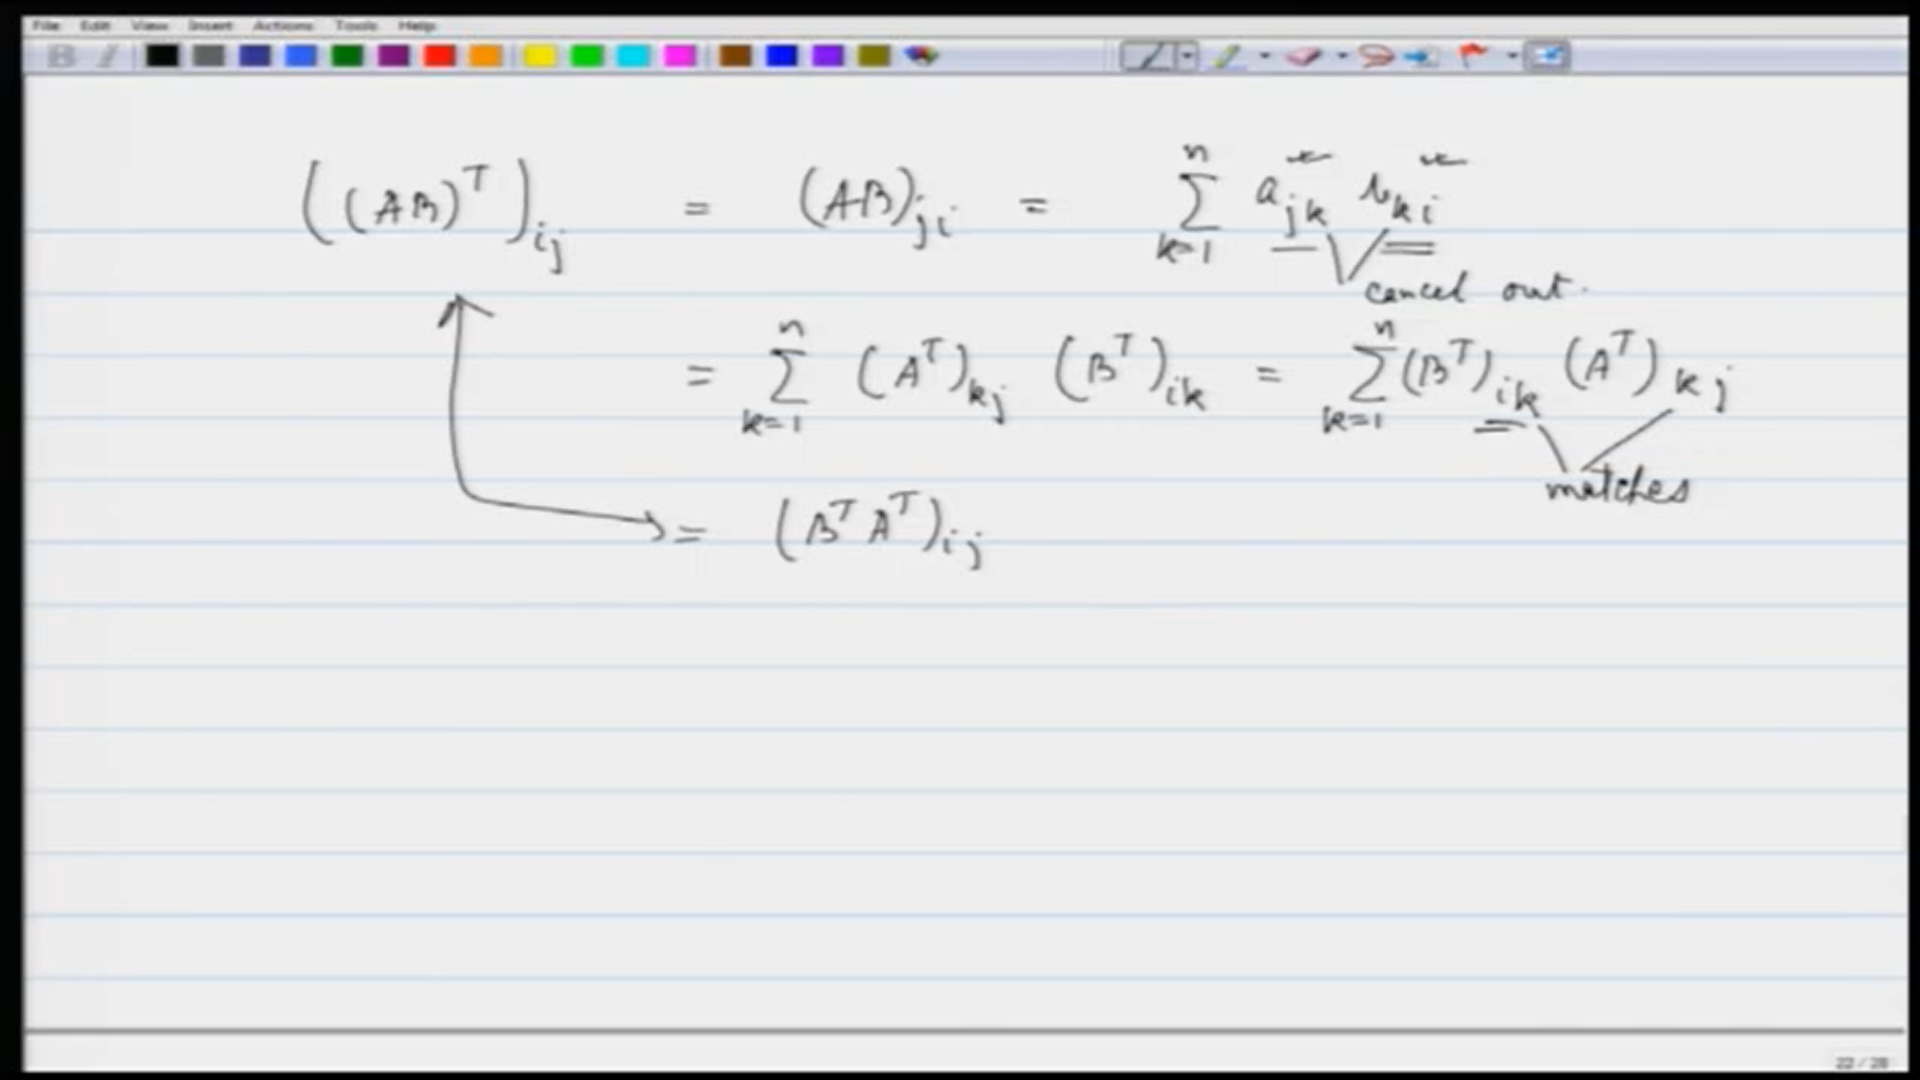 File Edit View Insert Actions Tools Help
B I
((AB)^T)_{ij} = (AB)_{ji} = \sum_{k=1}^{n} a_{jk} b_{ki}
cancel out.
= \sum_{k=1}^{n} (A^T)_{kj} (B^T)_{ik} = \sum_{k=1}^{n} (B^T)_{ik} (A^T)_{kj}
matches
= (B^T A^T)_{ij}